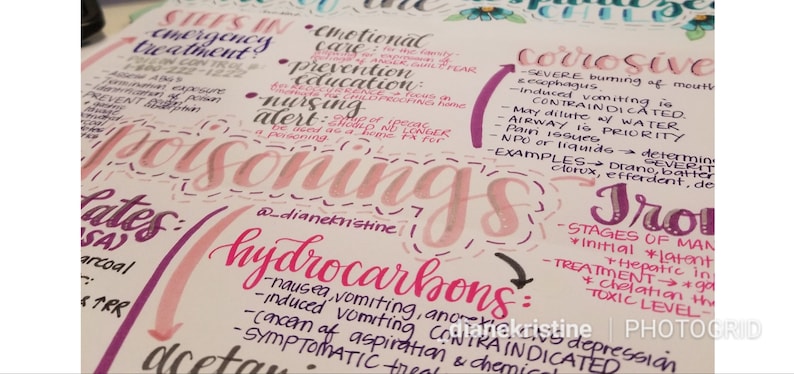 of the
CHILD
STEPS IN
emergency
treatment:
- POISON CONTROL @
1800-222-1222
- Assess ABC's
- Terminate exposure
- Identification of poison
- PREVENT poison
absorption
• emotional
care: For the family-
of ANGER, GUILT, FEAR
• prevention
education:
RECURRENCE → Focus on
CHILD PROOFING home
• nursing
alert: Syrup of ipecac
SHOULD NO LONGER
be used as a home TX for
a poisoning.
corrosive
- SEVERE burning of mouth
& esophagus.
- Induced vomiting is
CONTRAINDICATED.
- May dilute w/ WATER
- AIRWAY is PRIORITY
- Pain issues
- NPO or liquids → determine
SEVERITY
- EXAMPLES → Drano, batter
clorox, efferdent, de
poisonings
@_dianekristine
lates:
(ASA)
charcoal
& ↑RR
hydrocarbons:
- nausea, vomiting, anorexi
CNS depression
- induced vomiting CONTRAINDICATED
- cancern of aspiration & chemical
- SYMPTOMATIC treat
acetami
Iron
- STAGES OF MAN
* Initial * Latent
* Hepatic in
- TREATMENT →
* chelation th
TOXIC LEVEL -
_dianekristine | PHOTOGRID